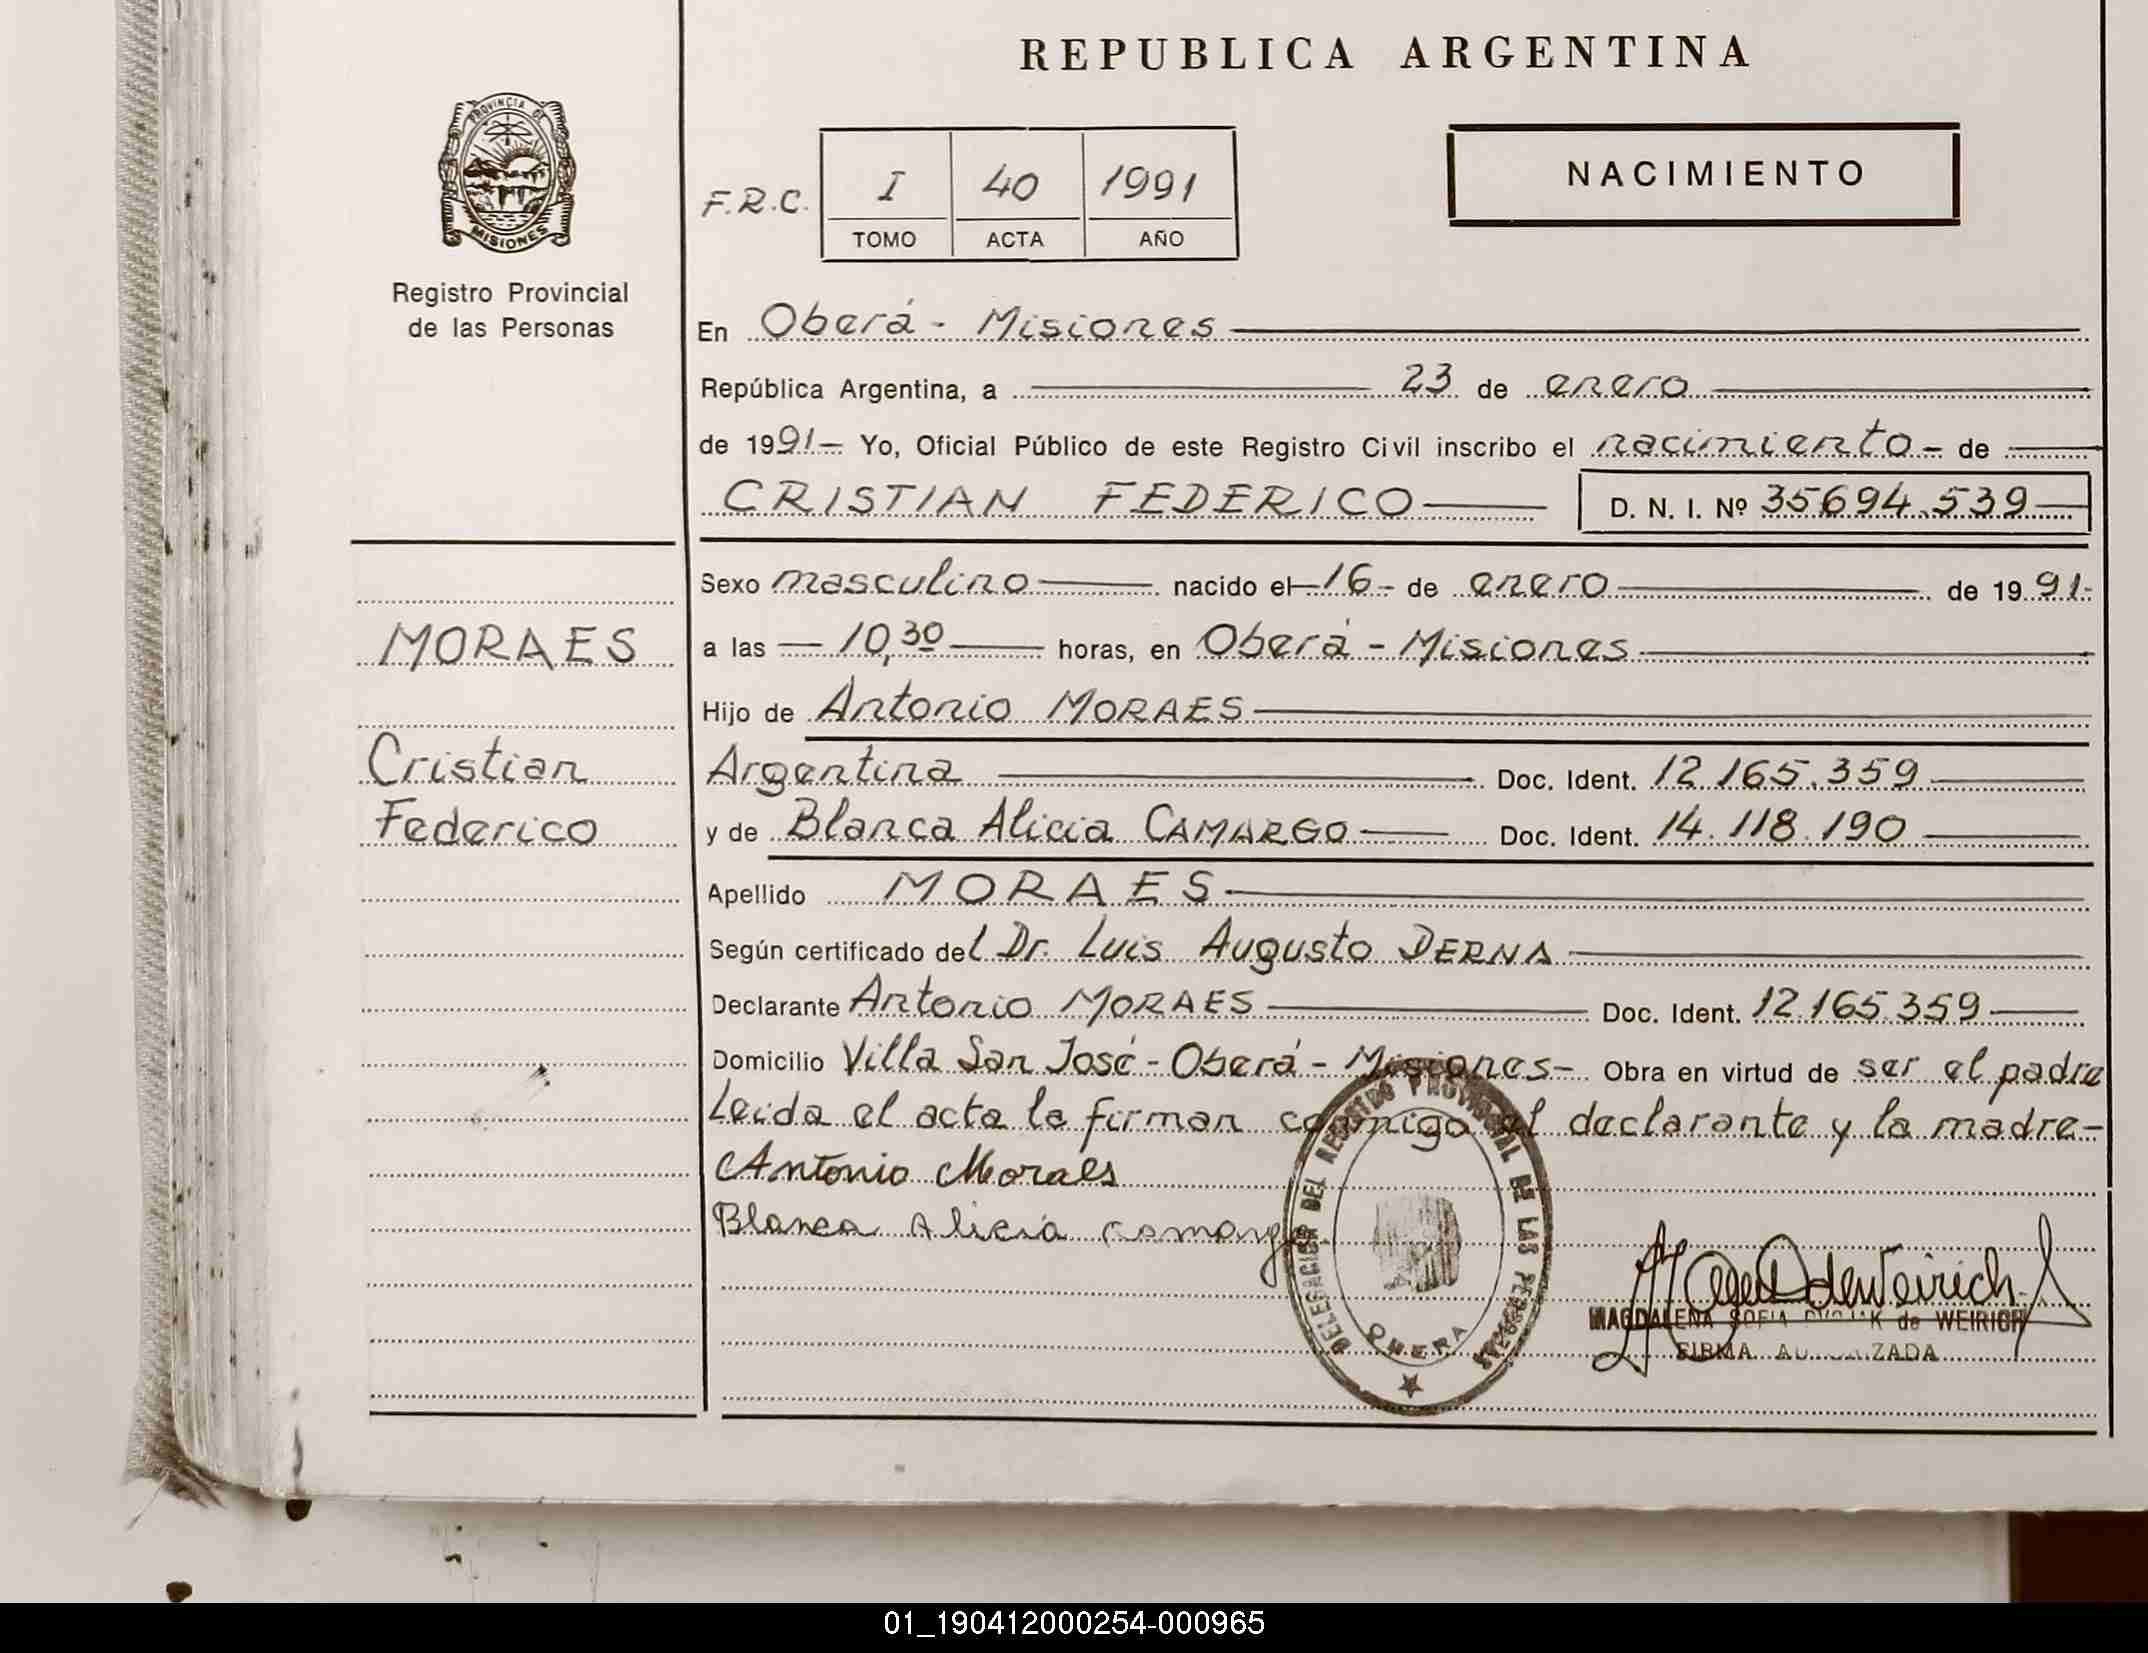 REPUBLICA ARGENTINA
PROVINCIA DE
MISIONES
Registro Provincial
de las Personas
NACIMIENTO
F.R.C. I 40 1991
TOMO ACTA AÑO
En Oberá - Misiones
República Argentina, a 23 de enero
de 1991 Yo, Oficial Público de este Registro Civil inscribo el nacimiento de
CRISTIAN FEDERICO D. N. I. Nº 35694.539
Sexo masculino nacido el 16 de enero de 1991
a las 10,30 horas, en Oberá - Misiones
Hijo de Antonio MORAES
Argentina Doc. Ident. 12.165.359
y de Blanca Alicia CAMARGO Doc. Ident. 14.118.190
Apellido MORAES
Según certificado del Dr. Luis Augusto DERNA
Declarante Antonio MORAES Doc. Ident. 12.165.359
Domicilio Villa San José - Oberá - Misiones - Obra en virtud de ser el padre
Leida el acta la firman conmigo el declarante y la madre -
Antonio Moraes
Blanca Alicia Camargo
MORAES
Cristian
Federico
DELEGACION DEL REGISTRO PROVINCIAL DE LAS PERSONAS
OBERA
de Weirich
MAGDALENA SOFIA de WEIRICH
FIRMA AUTORIZADA
01_190412000254-000965